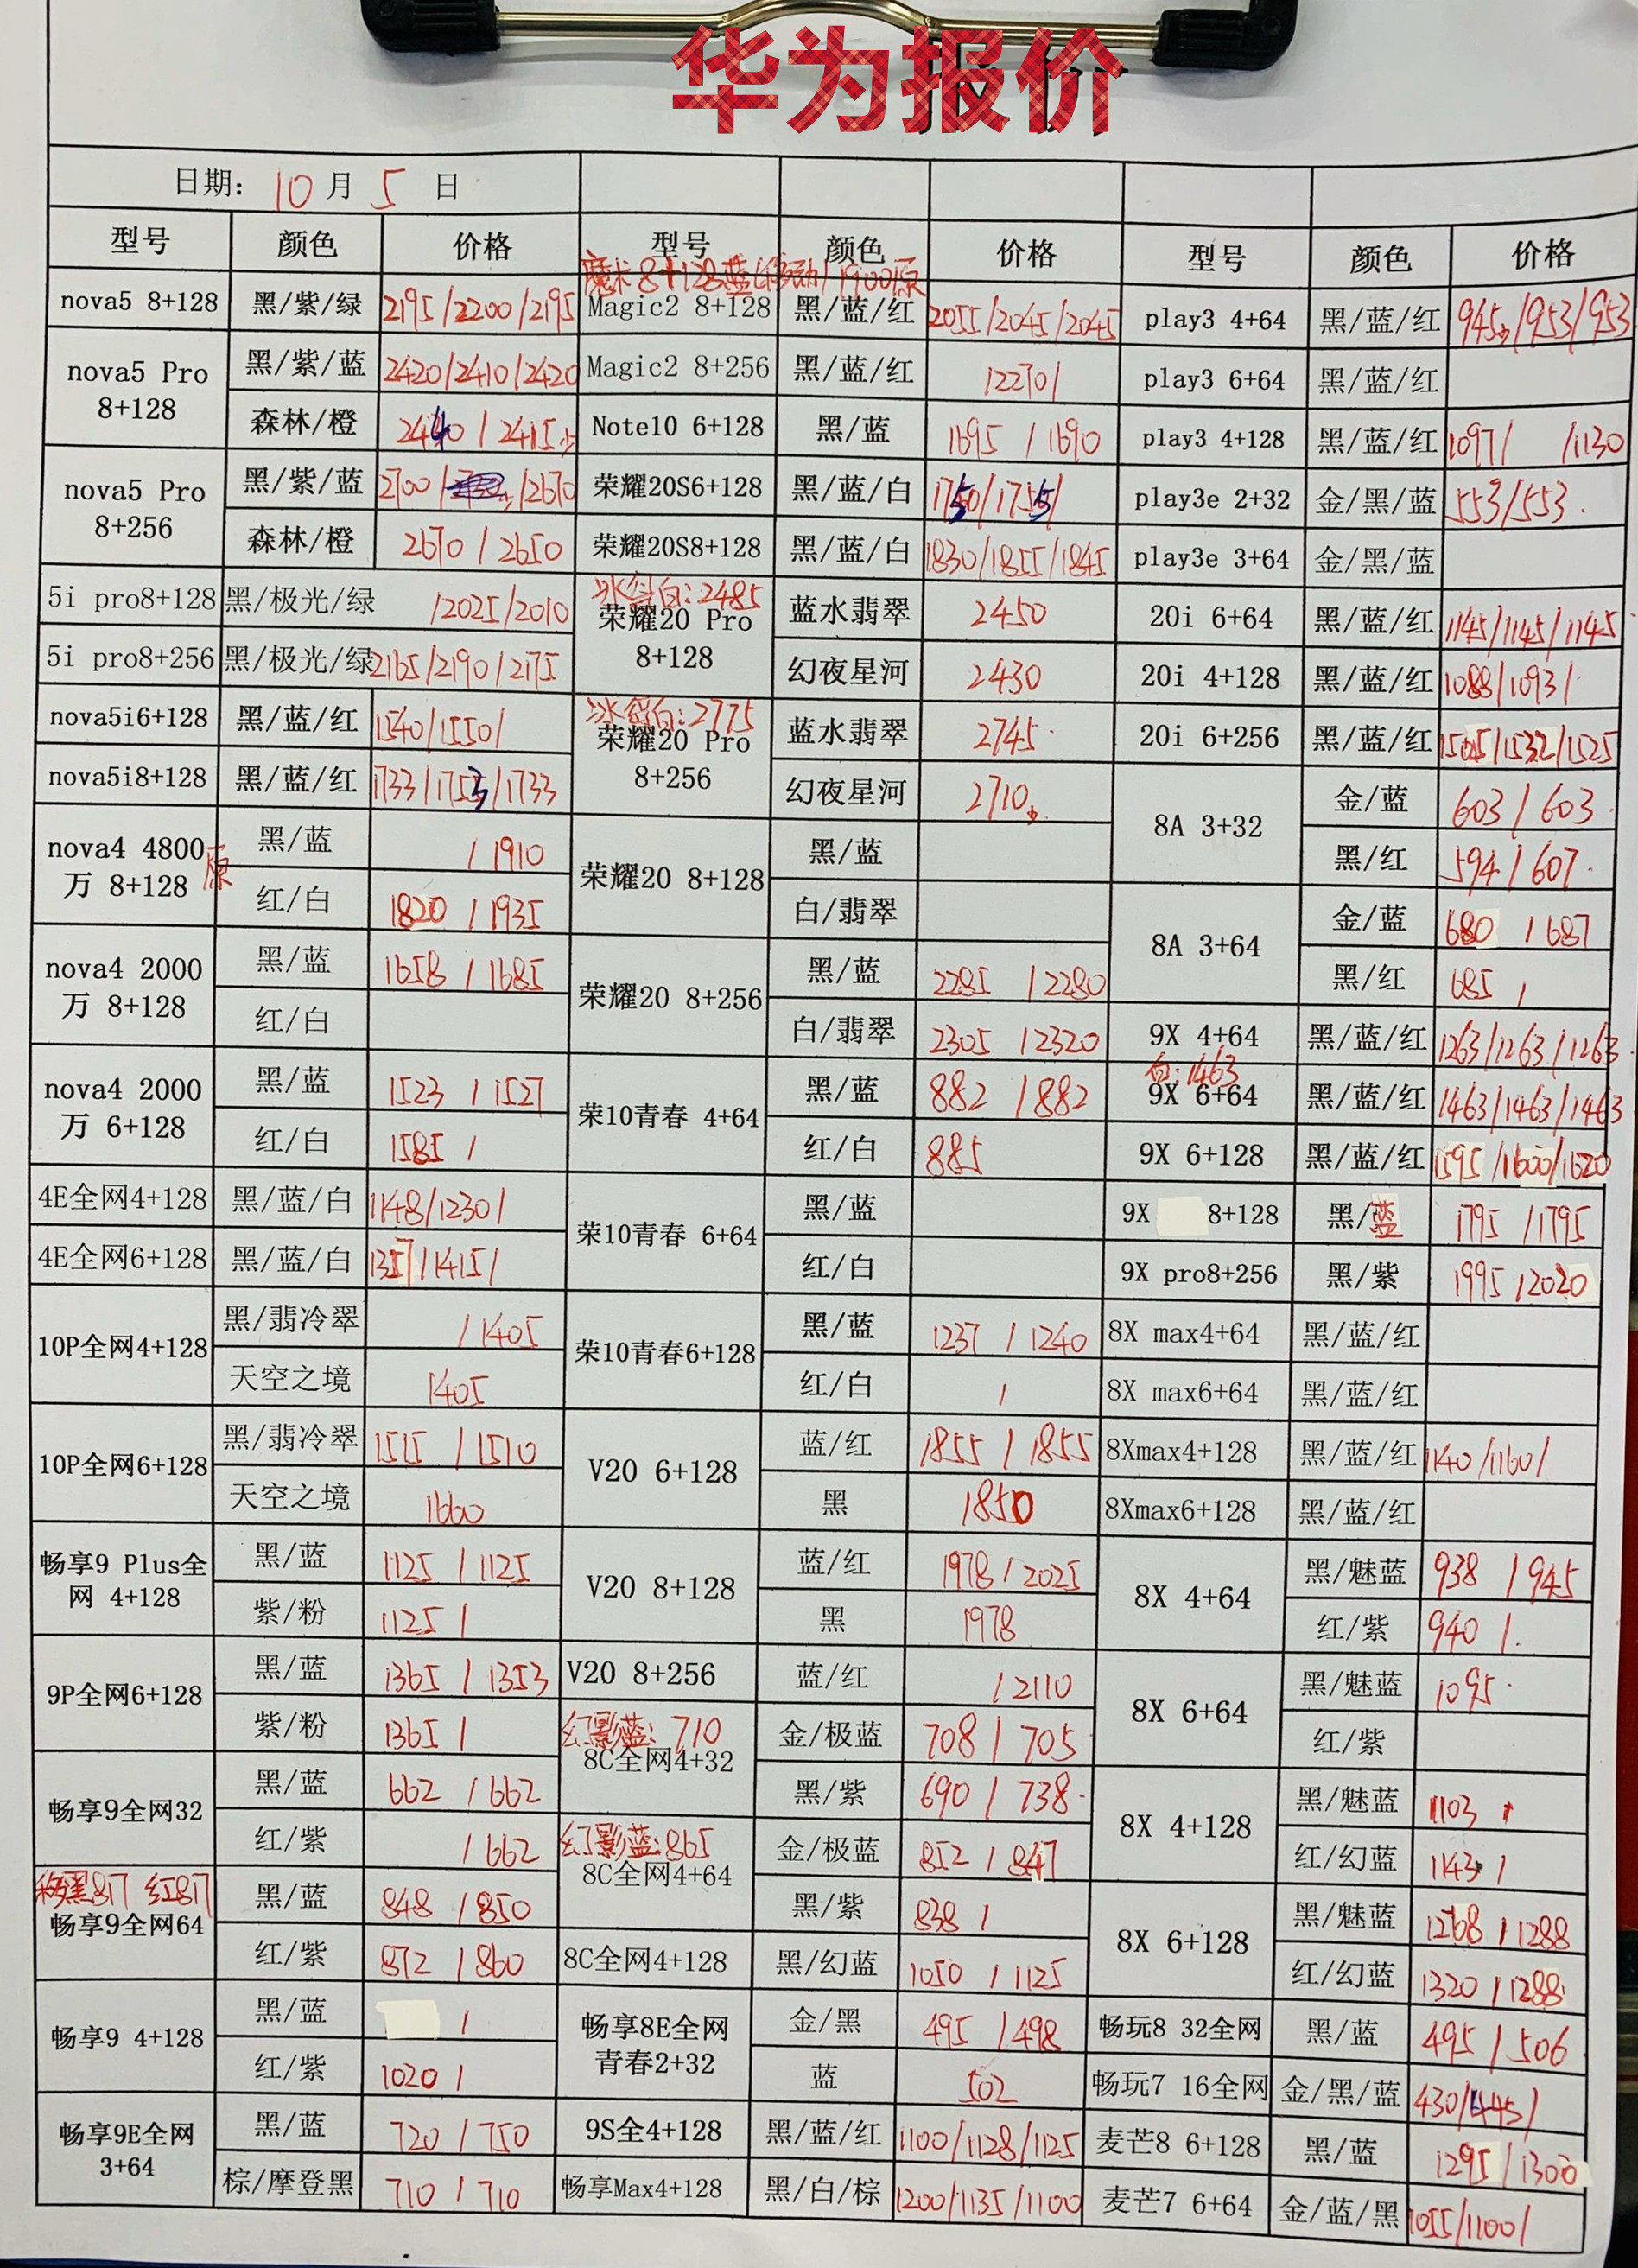 华为报价
日期: 10 月 5 日
型号 颜色 价格 型号 颜色 价格 型号 颜色 价格
魔术8+128蓝(移动)1900原
nova5 8+128 黑/紫/绿 2195/2200/2195 Magic2 8+128 黑/蓝/红 2055/2045/2045 play3 4+64 黑/蓝/红 945/953/953
nova5 Pro 8+128 黑/紫/蓝 2420/2410/2420 Magic2 8+256 黑/蓝/红 /2270/ play3 6+64 黑/蓝/红
森林/橙 2440/2415 Note10 6+128 黑/蓝 1695/1690 play3 4+128 黑/蓝/红 1097/ /1130
nova5 Pro 8+256 黑/紫/蓝 2700/ /2670 荣耀20S6+128 黑/蓝/白 1750/1755/ play3e 2+32 金/黑/蓝 553/553
森林/橙 2670/2650 荣耀20S8+128 黑/蓝/白 1830/1855/1845 play3e 3+64 金/黑/蓝
5i pro8+128 黑/极光/绿 /2025/2010 冰岛白:2485 荣耀20 Pro 8+128 蓝水翡翠 2450 20i 6+64 黑/蓝/红 1145/1145/1145
5i pro8+256 黑/极光/绿 2165/2190/2175 幻夜星河 2430 20i 4+128 黑/蓝/红 1088/1093/
nova5i6+128 黑/蓝/红 1540/1550/ 冰岛白:2775 荣耀20 Pro 8+256 蓝水翡翠 2745 20i 6+256 黑/蓝/红 /1532/1525
nova5i8+128 黑/蓝/红 1733/1753/1733 幻夜星河 2710 8A 3+32 金/蓝 603/603
nova4 4800万 8+128 原 黑/蓝 /1910 荣耀20 8+128 黑/蓝 黑/红 594/607
红/白 1820/1935 白/翡翠 8A 3+64 金/蓝 680/687
nova4 2000万 8+128 黑/蓝 1658/1685 荣耀20 8+256 黑/蓝 2285/2280 黑/红 685/
红/白 白/翡翠 2305/2320 9X 4+64 黑/蓝/红 1263/1263/1263
nova4 2000万 6+128 黑/蓝 1523/1527 荣10青春 4+64 黑/蓝 882/882 白:1463 9X 6+64 黑/蓝/红 1463/1463/1463
红/白 1585/ 红/白 885 9X 6+128 黑/蓝/红 1595/1600/1620
4E全网4+128 黑/蓝/白 1148/1230/ 荣10青春 6+64 黑/蓝 9X 8+128 黑/蓝 1795/1795
4E全网6+128 黑/蓝/白 1357/1415/ 红/白 9X pro8+256 黑/紫 1995/2020
10P全网4+128 黑/翡冷翠 /1405 荣10青春6+128 黑/蓝 1237/1240 8X max4+64 黑/蓝/红
天空之境 1405 红/白 / 8X max6+64 黑/蓝/红
10P全网6+128 黑/翡冷翠 1515/1510 V20 6+128 蓝/红 1855/1855 8Xmax4+128 黑/蓝/红 1140/1160/
天空之境 1660 黑 1850 8Xmax6+128 黑/蓝/红
畅享9 Plus全网 4+128 黑/蓝 1125/1125 V20 8+128 蓝/红 1978/2025 8X 4+64 黑/魅蓝 938/945
紫/粉 1125/ 黑 1978 红/紫 940/
9P全网6+128 黑/蓝 1365/1353 V20 8+256 蓝/红 /2110 8X 6+64 黑/魅蓝 1095
紫/粉 1365/ 幻影蓝:710 8C全网4+32 金/极蓝 708/705 红/紫
畅享9全网32 黑/蓝 662/662 黑/紫 690/738 8X 4+128 黑/魅蓝 1103/
红/紫 /662 幻影蓝:865 8C全网4+64 金/极蓝 852/847 红/幻蓝 1143/
移黑817 红817 畅享9全网64 黑/蓝 848/850 黑/紫 838/ 8X 6+128 黑/魅蓝 1268/1288
红/紫 872/860 8C全网4+128 黑/幻蓝 1050/1125 红/幻蓝 1320/1288
畅享9 4+128 黑/蓝 / 畅享8E全网青春2+32 金/黑 495/498 畅玩8 32全网 黑/蓝 495/506
红/紫 1020/ 蓝 502 畅玩7 16全网 金/黑/蓝 430/445/
畅享9E全网 3+64 黑/蓝 720/750 9S全4+128 黑/蓝/红 1100/1128/1125 麦芒8 6+128 黑/蓝 1295/1300
棕/摩登黑 710/710 畅享Max4+128 黑/白/棕 1200/1135/1100 麦芒7 6+64 金/蓝/黑 1055/1100/